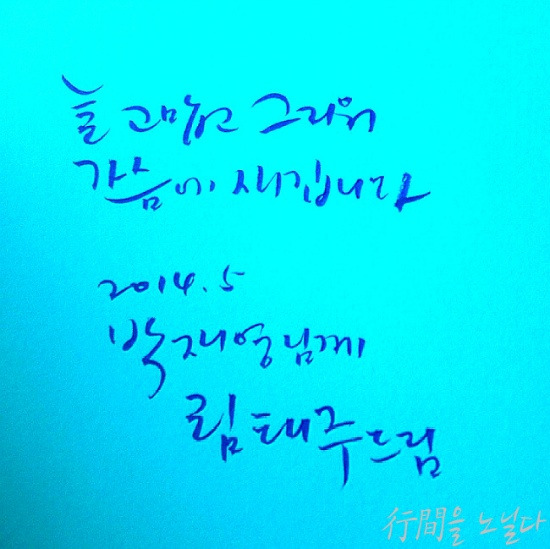 늘 고맙고 그리워
가슴에 새깁니다
2014.5
박재영님께
림태주드림
行間을 노닐다